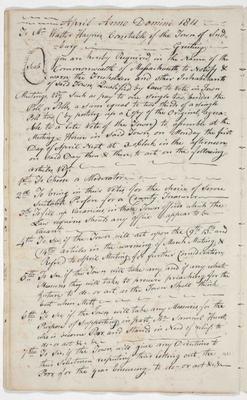 April Anno Domini 1811
To Mr Walter Haynes Constable of the Town of Sud-
bury Greeting
Seal
You are hereby Required in the Name of the
Commonwealth of Massachusetts to notify &
warn the Freeholders and other Inhabitants
of said Town Qualified by Law to vote in Town
Meetings viz Such as pay to one Single tax besides the
Poll or Polls a sum equal to two thirds of a single
Poll tax (by posting up a Copy of the Original
ble to a late Vote of the Town) to assemble at the
Meeting House in Said Town on Monday the first
Day of April Next at o Clock in the afternoon
on said Day then & there to act on the following
articles viz
1st To Choose a Moderator
2nd To bring in their Votes for the choice of Some
Suitable Person for a County Treasurer
3rd To fill up vacancies in those Town offices which the
Law requires should any office appear to be
vacant
4th To See if the Town will act upon the 9th 13th and
14th articles in the warning of March Meeting, &
Refer'd to April Meeting for further Consideration
5th To See if the Town will take any and if any what
Measures they will take to procure preaching for the
future to do or act as the Town shall think
but when Met
6th To See if the Town will take any Measures for the
Purpose of Supporting in part, Mr Samuel
who is become Poor and Stands in Need of relief to
do or act &c &c
7th To See if the Town will give any Directions to
their Selectmen respecting their letting out the
Poor for the year Ensuing to do or act &c &c